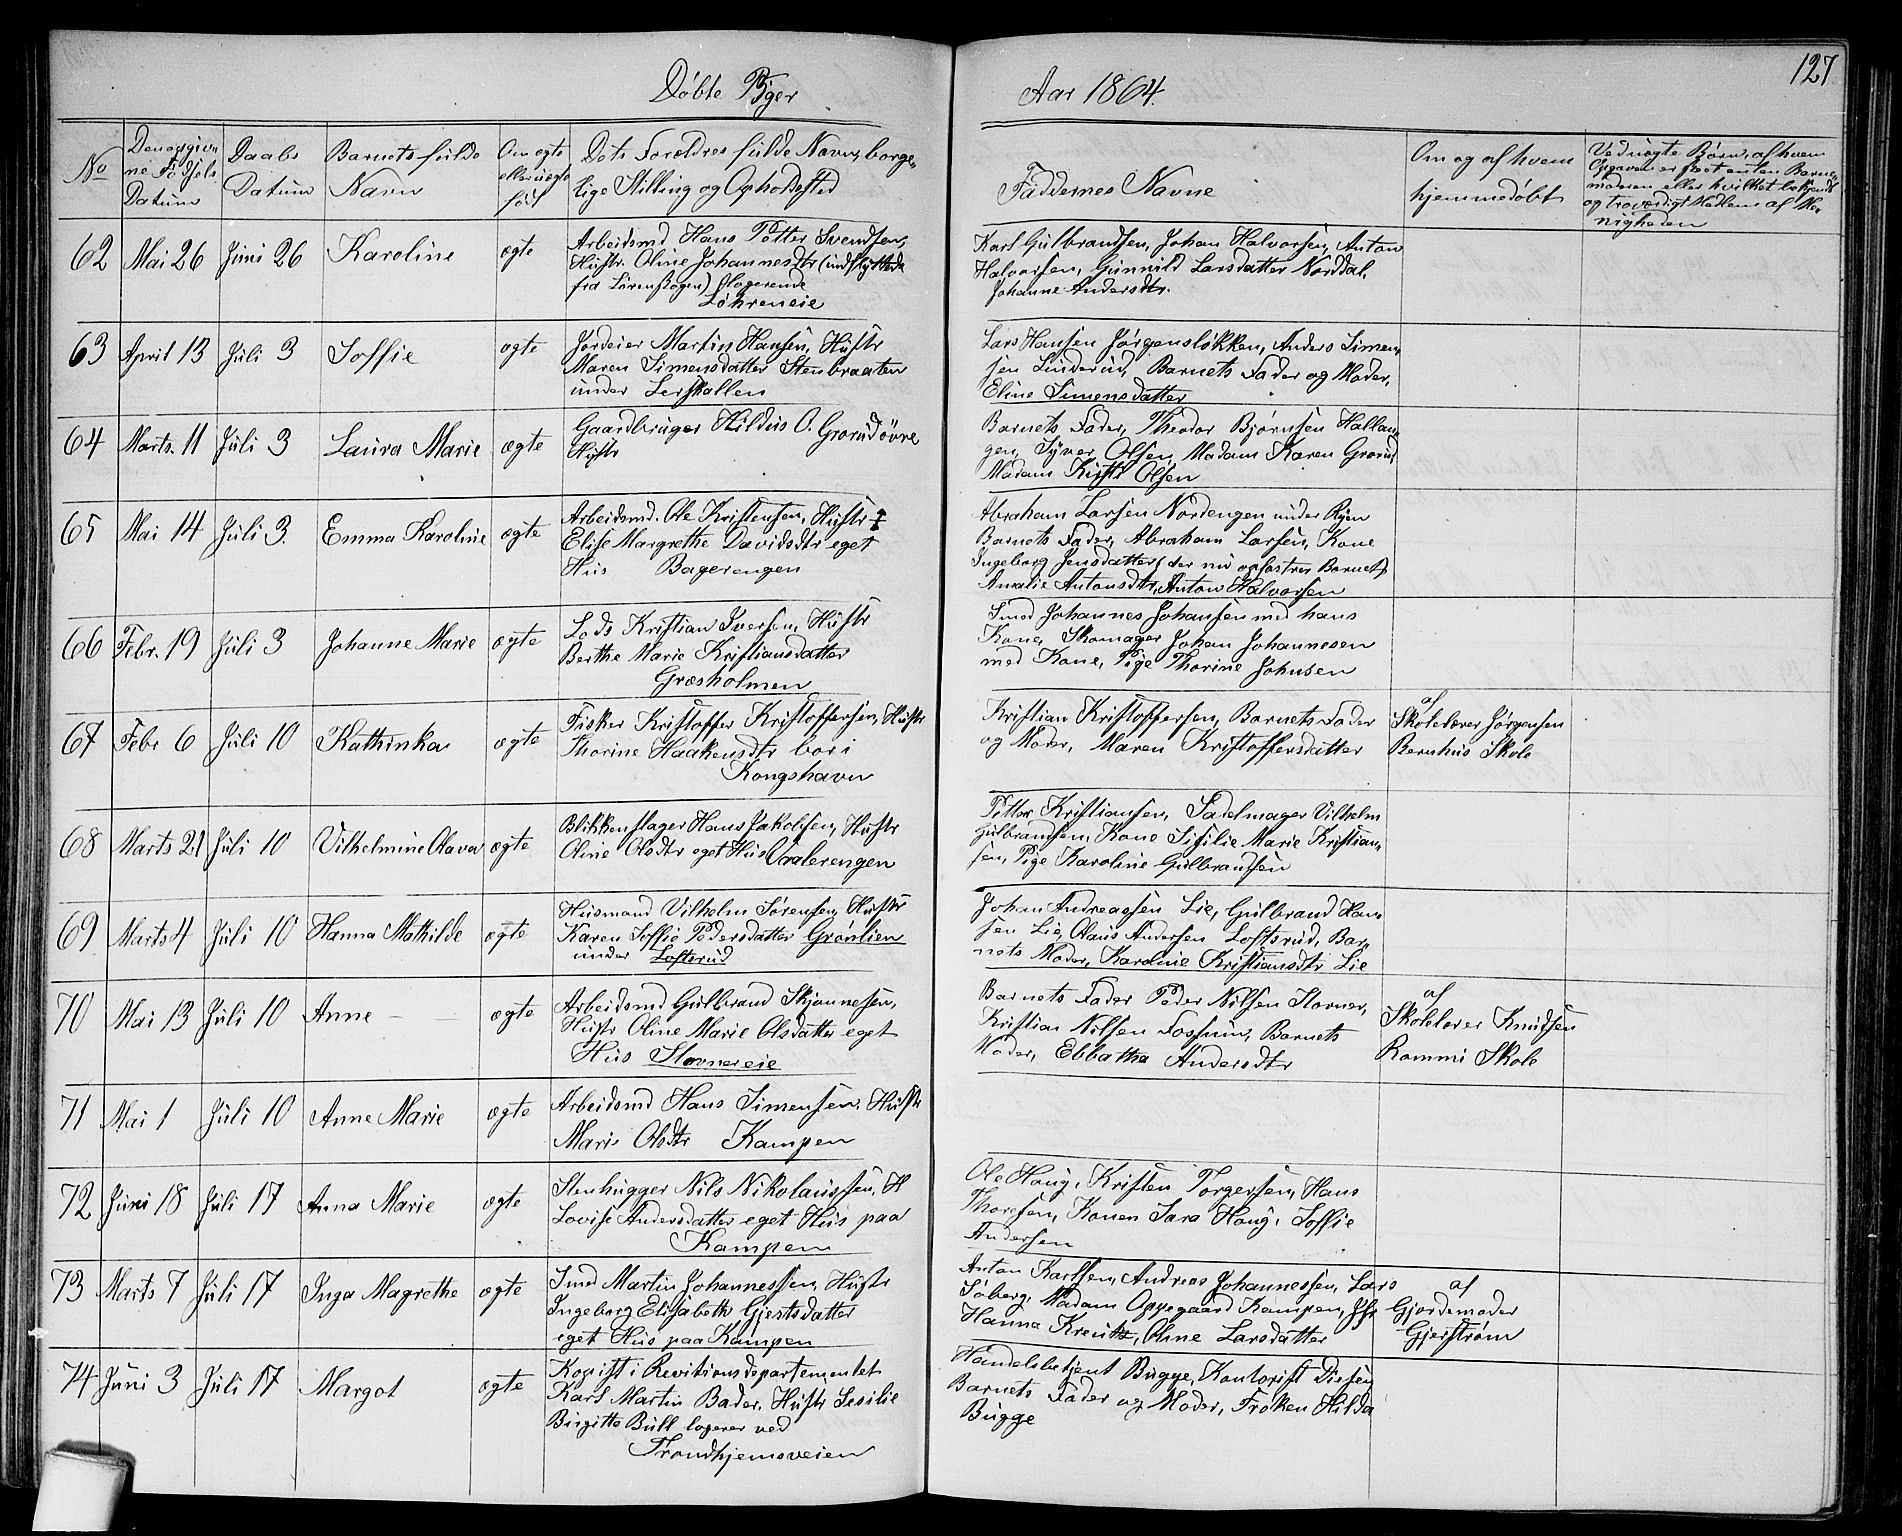 127
Døbte Piger Aar 1864.
No
Den opgivne Fødsels Datum
Daabs Datum
Barnets fulde Navn
Om ægte eller uægte født
Dets Forældres fulde Navn, borgelige Stilling og Opholdssted
Faddernes Navne
Om og af hvem hjemmedøbt
Ved uægte Børn, af hvem Opgaven er skeet enten Barnemoderen eller hvilket bekjendt og troværdigt Medlem af Menigheden
62 Mai 26 Juni 26 Karoline ægte
Arbeidsmd Hans Petter Svendsen,
Hustr. Oline Johannesdtr (indflyttede
fra Lørenskogen) logerende
Løhreneie
Karl Gulbrandsen, Johan Halvorsen, Anton
Halvorsen, Gunnild Larsdatter Norddal,
Johanne Andersdtr.
63 April 13 Juli 3 Soffie ægte
Jordeier Martin Hansen, Hustr
Maren Simensdatter Stenbraaten
under Lerskallen
Lars Hansen Jørgensløkken, Anders Simen-
sen Linderud, Barnets Fader og Moder,
Eline Simensdatter
64 Marts. 11 Juli 3 Laura Marie ægte
Gaardbruger Hildus O. Grorud övre
Hustr
Barnets Fader, Theodor Bjørnsen Hallan-
gen, Syver Olsen, Madam Karen Grorud,
Madam Olsen
65 Mai 14 Juli 3. Emma Karoline ægte
Arbeidsmd. Ole Kristensen, Hustr †
Elise Margrethe Davidsdtr eget
Hus Bagerengen
Abraham Larsen Nordengen under Ryen
Barnets Fader, Abraham Larsen, Kone
Ingeborg Jensdatter (der nu opfostrer Barnet)
Amalie Antonsdtr, Anton Halvorsen
66 Febr. 19 Juli 3 Johanne Marie ægte
Lods Kristian Iversen, Hustr
Berthe Marie Kristiansdatter
Græsholmen
Smed Johannes Johansen med hans
Kone, Skomager Johan Johannesen
med Kone, Pige Thorine Johnsen
67 Febr 6 Juli 10 Kathinka ægte
Fisker Kristoffer Kristoffersen, Hustr
Thorine Haakensdtr bor i
Kongshavn
Kristian Kristoffersen, Barnets Fader
og Moder, Maren Kristoffersdatter
af
Skolelærer Jørgensen
Bernhus Skole
68 Marts 21 Juli 10 Vilhelmine Olava ægte
Blikkenslager Hans Jakobsen, Hustr
Oline Olsdtr eget Hus Vaalerengen
Petter Kristiansen, Sadelmager Vilhelm
Gulbrandsen, Kone Sisilie Marie Kristian-
sen, Pige Karoline Gulbrandsen
69 Marts 4 Juli 10 Hanna Mathilde ægte
Husmand Vilhelm Sørensen, Hustr
Karen Soffie Pedersdatter Grønlien
under Loftsrud
Johan Andreassen Lie, Gulbrand Han-
sen Lie, Olaus Andersen Loftsrud, Bar-
nets Moder, Karoline Kristiansdtr Lie
70 Mai 13 Juli 10 Anne ægte
Arbeidsmd Gulbrand Skjønnesen,
Hustr Oline Marie Olsdatter eget
Hus Stovnereie
Barnets Fader Peder Nilsen Stovner,
Kristian Nilsen Fossum, Barnets
Moder, Ebbatha Andersdtr
af
Skolelærer Knudsen
Rommi Skole
71 Mai 1 Juli 10 Anne Marie ægte
Arbeidsmd Hans Simensen, Hustr
Marie Olsdtr Kampen
72 Juni 18 Juli 17 Anna Marie ægte
Stenhugger Nils Nikolaussen, H
Lovise Andersdatter eget Hus paa
Kampen
Ole Haug, Kristen Torgersen, Hans
Thoresen, Konen Sara Haug, Soffie
Andersen
73 Marts 7 Juli 17 Inga Magrethe ægte
Smed Martin Johannessen, Hustr
Ingeborg Elisabeth Gjertsdatter
eget Hus paa Kampen
Anton Karlsen, Andreas Johannessen, Lars
Søberg, Madam Oppegaard Kampen, Jfr
Hanna Kreutz, Oline Larsdatter
af
Gjordemoder
Gjerstrøm
74 Juni 3 Juli 17 Margot ægte
Kopist i Revitionsdepartementet
Karl Martin Bader, Hustr Sesilie
Birgitte Bull logerer ved
Trondhjemsveien
Handelsbetjent Bugge, Kontorist Diesen
Barnets Fader og Moder, Frøken Hilda
Bugge